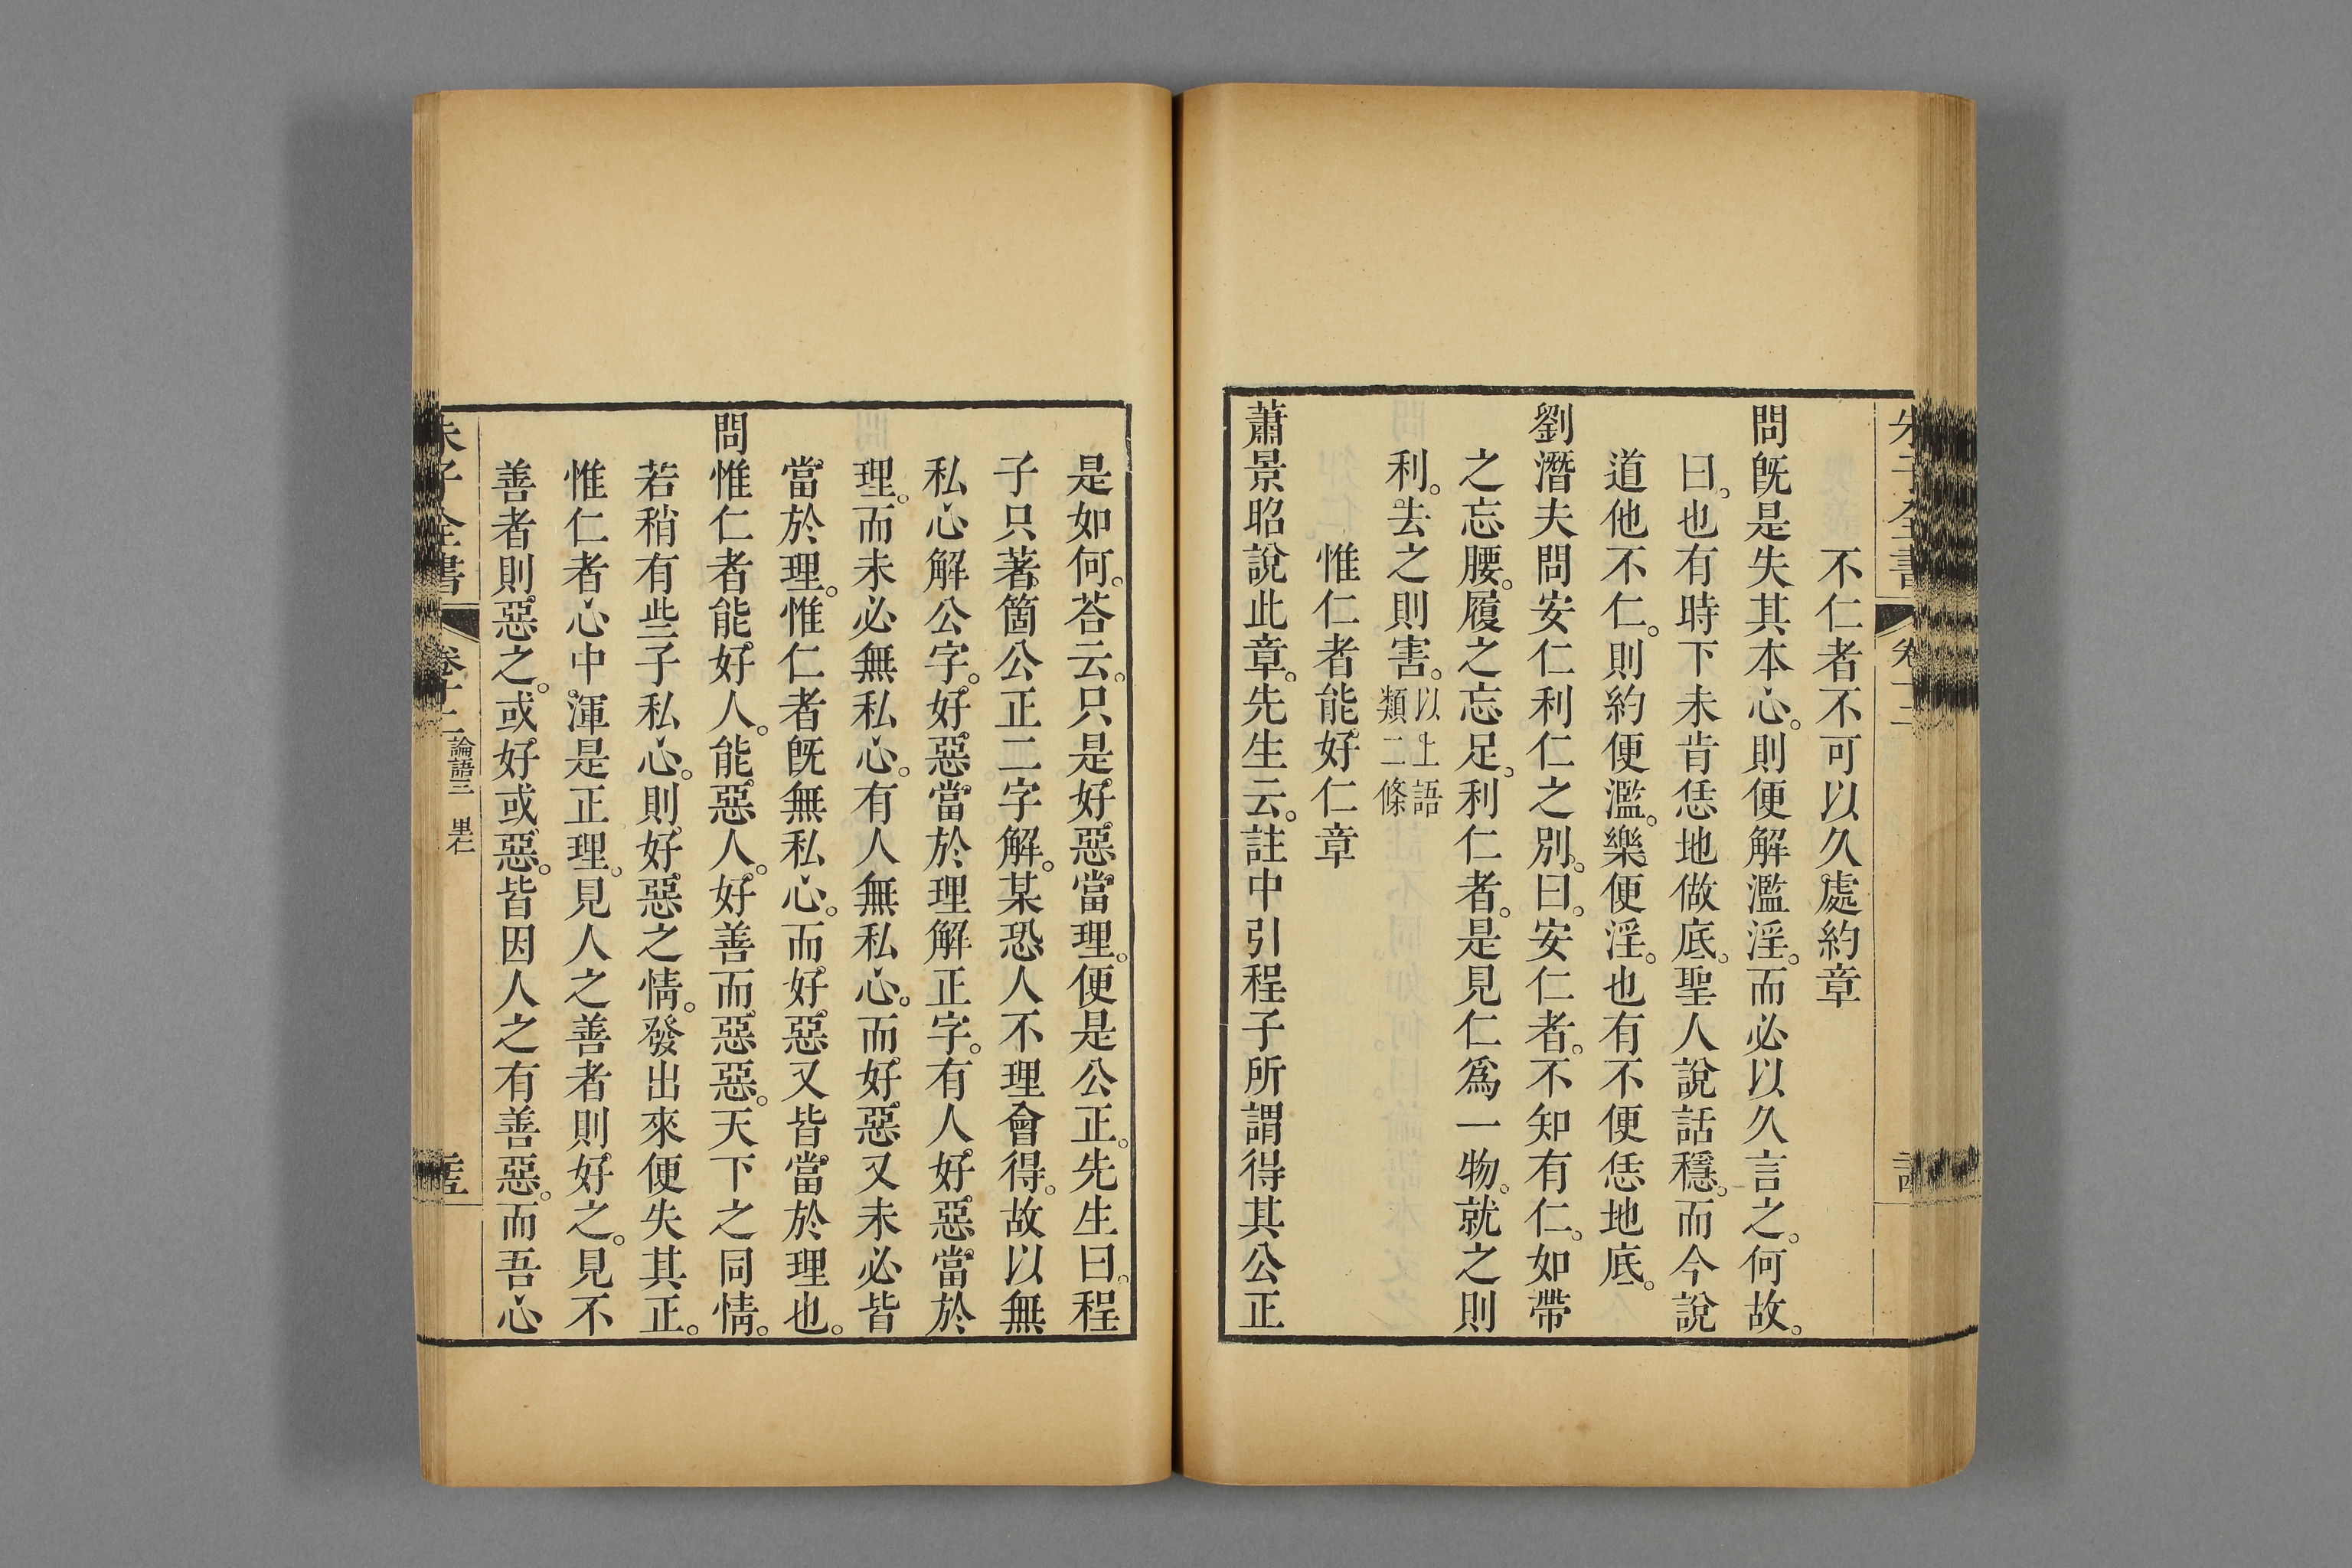 不仁者不可以久處約章
問旣是失其本心。則便解濫淫。而必以久言之。何故。
曰。也有時下未肯恁地做底。聖人說話穩。而今說
道他不仁。則約便濫。樂便淫。也有不便恁地底。
劉潛夫問安仁利仁之別。曰。安仁者。不知有仁。如帶
之忘腰。履之忘足。利仁者。是見仁爲一物。就之則
利。去之則害。以上語類二條
惟仁者能好仁章
蕭景昭說此章。先生云。註中引程子所謂得其公正
是如何。荅云。只是好惡當理。便是公正。先生曰。程
子只著箇公正二字解。某恐人不理會得。故以無
私心解公字。好惡當於理解正字。有人好惡當於
理。而未必無私心。有人無私心。而好惡又未必皆
當於理。惟仁者旣無私心。而好惡又皆當於理也。
問惟仁者能好人。能惡人。好善而惡惡。天下之同情。
若稍有些子私心。則好惡之情。發出來便失其正。
惟仁者心中渾是正理。見人之善者則好之。見不
善者則惡之。或好或惡。皆因人之有善惡。而吾心
朱子全書
論語三 里仁